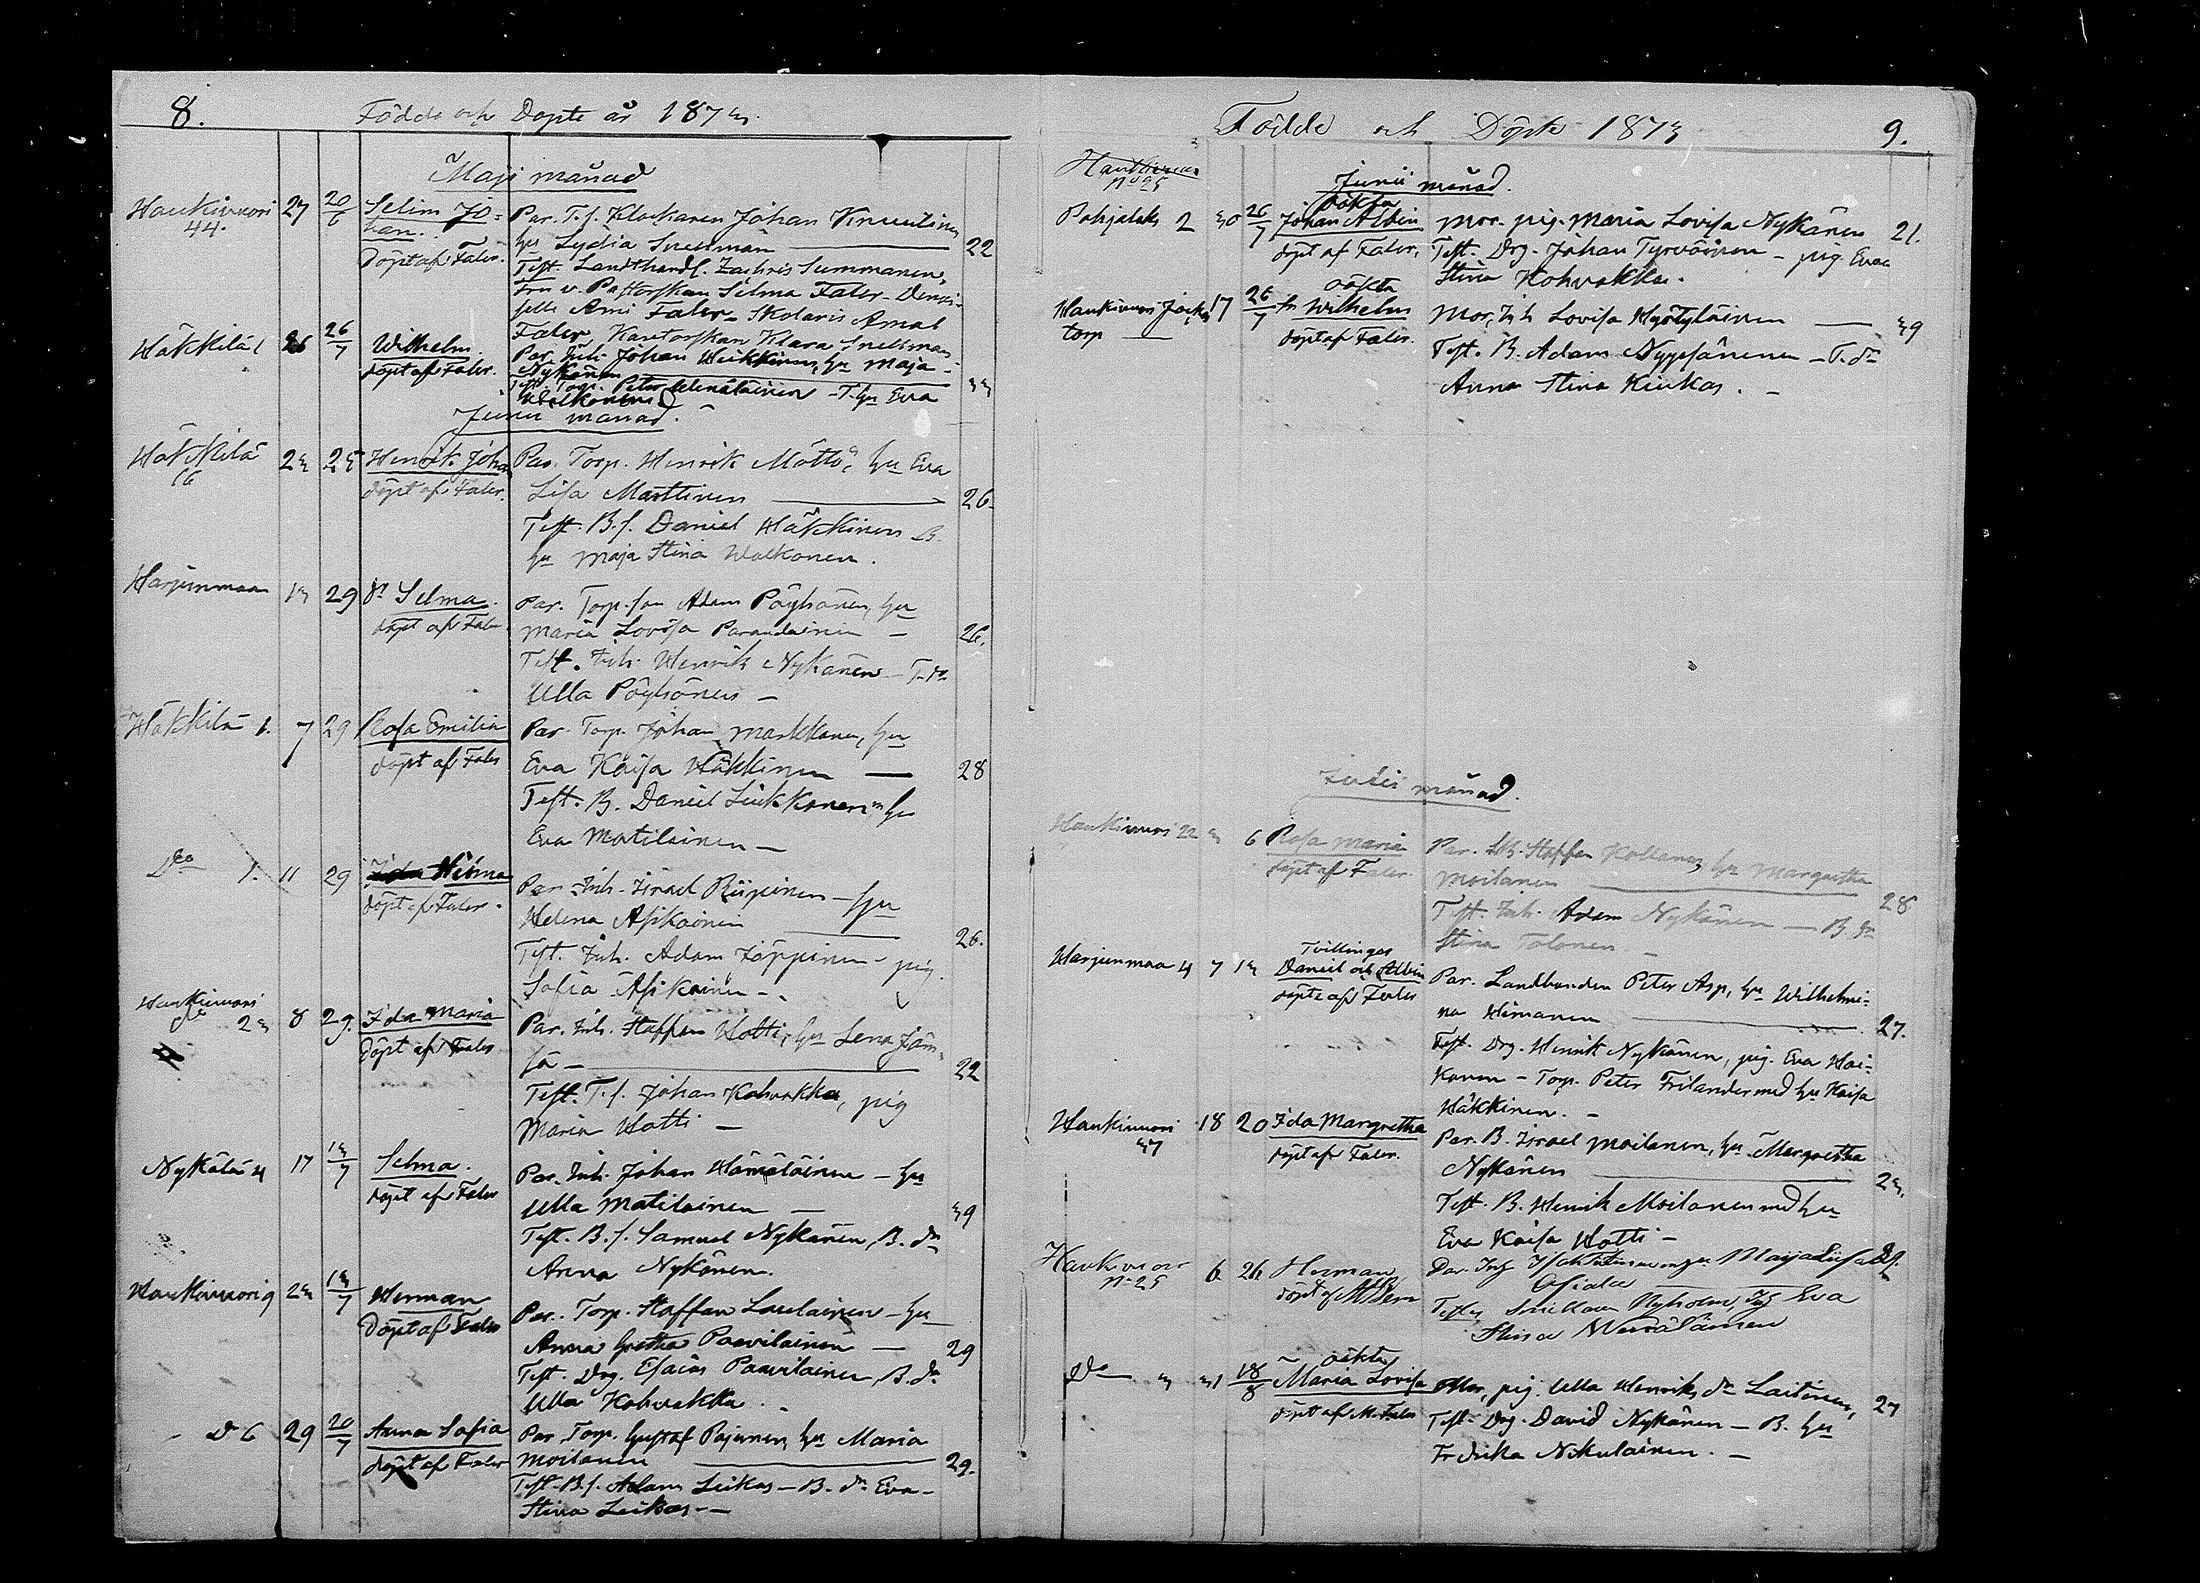 8.
Födde och Döpte år 1873.
Maji månad
Haukivuori 27 20/6 Selim Jo= Par. T.s. Klockaren Johan Knuutinen
44. han. hu Lydia Snellman 22
döpt af Faler. Test. Landthandl. Zachris Summanen,
Fru v. Pastorskan Selma Faler - Demoi-
selle Ami Faler - Skolaris Amal
Faler, Kantorskan Klara Snellman
Häkkilä 1 26 26/7 Wilhelm Par. Inh. Johan Heikkinen, hu Maja
döpt af Faler. Nykänen 33
Test. Torp. Peter Wenäläinen - T. hu Eva
Walkonen
Junii månad.
Häkkilä 23 25 Henrik Johan Par. Torp. Henrik Mättö, hu Eva
16 döpt af Faler. Lisa Marttinen 26.
Test. B.s. Daniel Häkkinen B.
hu Maja Stina Walkonen.
Harjunmaa 13 29 dr Selma. Par. Torp. son Adam Pöyhönen, hu
döpt af Faler Maria Lovisa Parandainen - 26.
Test. Inh. Henrik Nykänen - T. dr
Ulla Pöyhönen -
Häkkilä 1. 7 29 Rosa Emilia Par. Torp. Johan Markkanen, hu
döpt af Faler Eva Kaisa Häkkinen 28
Test. B. Daniel Liukkonen m hu
Eva Matilainen -
Do 1. 11 29 Ida Hilma Par. Inh. Israel Riipinen - hu
döpt af Faler. Helena Asikainen 26.
Test. Inh. Adam Jäppinen - pig.
Sofia Asikainen -
Haukivuori 23 8 29. Ida Maria Par. Inh. Staffan Hotti, hu Lena Jäm-
döpt af Faler sä - 22
Test. T.s. Johan Kohvakka, pig
Maria Hotti -
Nykälä 4 17 13/7 Selma. Par. Inh. Johan Hämäläinen - hu
döpt af Faler Ulla Matilainen 39
Test. B.s. Samuel Nykänen, B. dr
Anna Nykänen.
Haukivuori 9 23 13/7 Herman Par. Torp. Staffan Laulainen - hu
döpt af Faler Anna Gretha Paavilainen - 29
Test. Drg. Esaias Paavilainen, B. dr
Ulla Kohvakka.
Do 6 29 20/7 Anna Sofia Par. Torp. Gustaf Pajunen, hu Maria
döpt af Faler Moilanen 29.
Test. B.s. Adam Leikas - B. dr Eva
Stina Leikas -
Födde och Döpte 1873 9.
Haukivuori
No 25
Junii månad.
oäkta
Pohjalak 2 30 26/7 Johan Albin Mor. pig. Maria Lovisa Nykänen 21.
döpt af Faler, Test. Drg. Johan Tyrväinen - pig. Eva
Stina Kohvakka.
oäkta
Haukivuori 17 26/7 Wilhelm Mor, Inh Lovisa Hyötyläinen 39
torp döpt af Faler. Test. B. Adam Nyyssönen - T. dr
Anna Stina Kiukas. -
Julii månad.
Haukivuori 22 3 6 Rosa Maria Par. Staffan Kollanen, hu Margretha
döpt af Faler. Moilanen 28
Test. Inh. Adam Nykänen - B. dr
Stina Tolonen
Tvillingar
Harjunmaa 4 7 13 Daniel och Albin Par. Landbonden Peter Asp, hu Wilhelmi-
döpte af Faler na Himanen 27.
Test. Drg. Henrik Nykänen, pig. Eva Hai-
konen - Torp. Peter Frilander med hu Kaisa
Häkkinen. -
Haukivuori 18 20 Ida Margretha Par. B. Israel Moilanen, hu Margretha
37 döpt af Faler. Nykänen 23.
Test. B. Henrik Moilanen med hu
Eva Kaisa Hotti -
Haukivuori 6 26 Herman
No 25 döpt af
Eva
Stina Wenäläinen
oäkta
Do 3 31 18/8 Maria Lovisa Mor, pig. Ulla Henriks dr Laitinen, 27
döpt af M. Faler Test. Drg. David Nykänen - B. hu
Fredrika Nikulainen. -